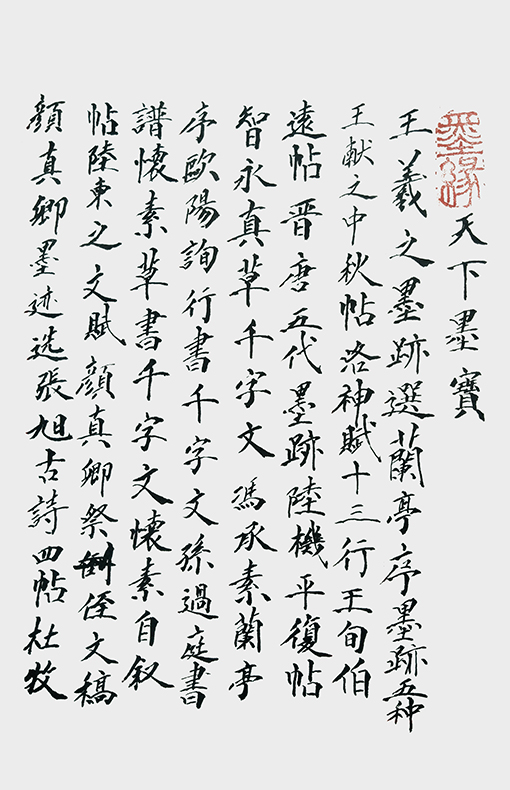 墨緣
天下墨寶
王羲之墨跡選蘭亭序墨跡五种
王献之中秋帖洛神賦十三行王旬伯
遠帖晋唐五代墨跡陸機平復帖
智永真草千字文馮承素蘭亭
序歐陽詢行書千字文孫過庭書
譜懷素草書千字文懷素自叙
帖陸東之文賦顏真卿祭侄文稿
顏真卿墨迹选張旭古詩四帖杜牧